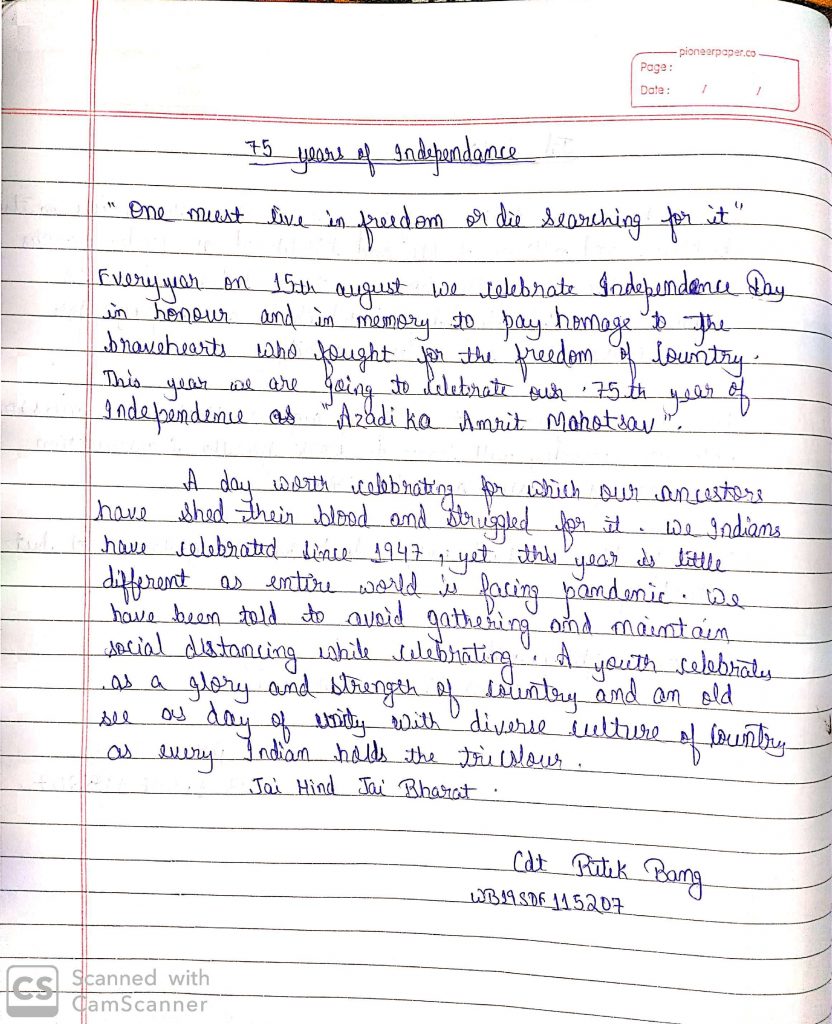 pioneerpaper.co
Page:
Date: / /
75 years of Independance
"One must live in freedom or die searching for it"
Every year on 15th august we celebrate Independence Day
in honour and in memory to pay homage to the
bravehearts who fought for the freedom of Country.
This year we are going to celebrate our 75th year of
Independence as "Azadi ka Amrit Mahotsav".
A day worth celebrating for which our ancestors
have shed their blood and struggled for it. We Indians
have celebrated since 1947, yet this year is little
different as entire world is facing pandemic. We
have been told to avoid gathering and maintain
social distancing while celebrating. A youth celebrates
as a glory and strength of country and an old
see as day of unity with diverse culture of Country
as every Indian holds the tricolour.
Jai Hind Jai Bharat.
Cdt Ritik Bang
WB19SDF115207
CS Scanned with
CamScanner